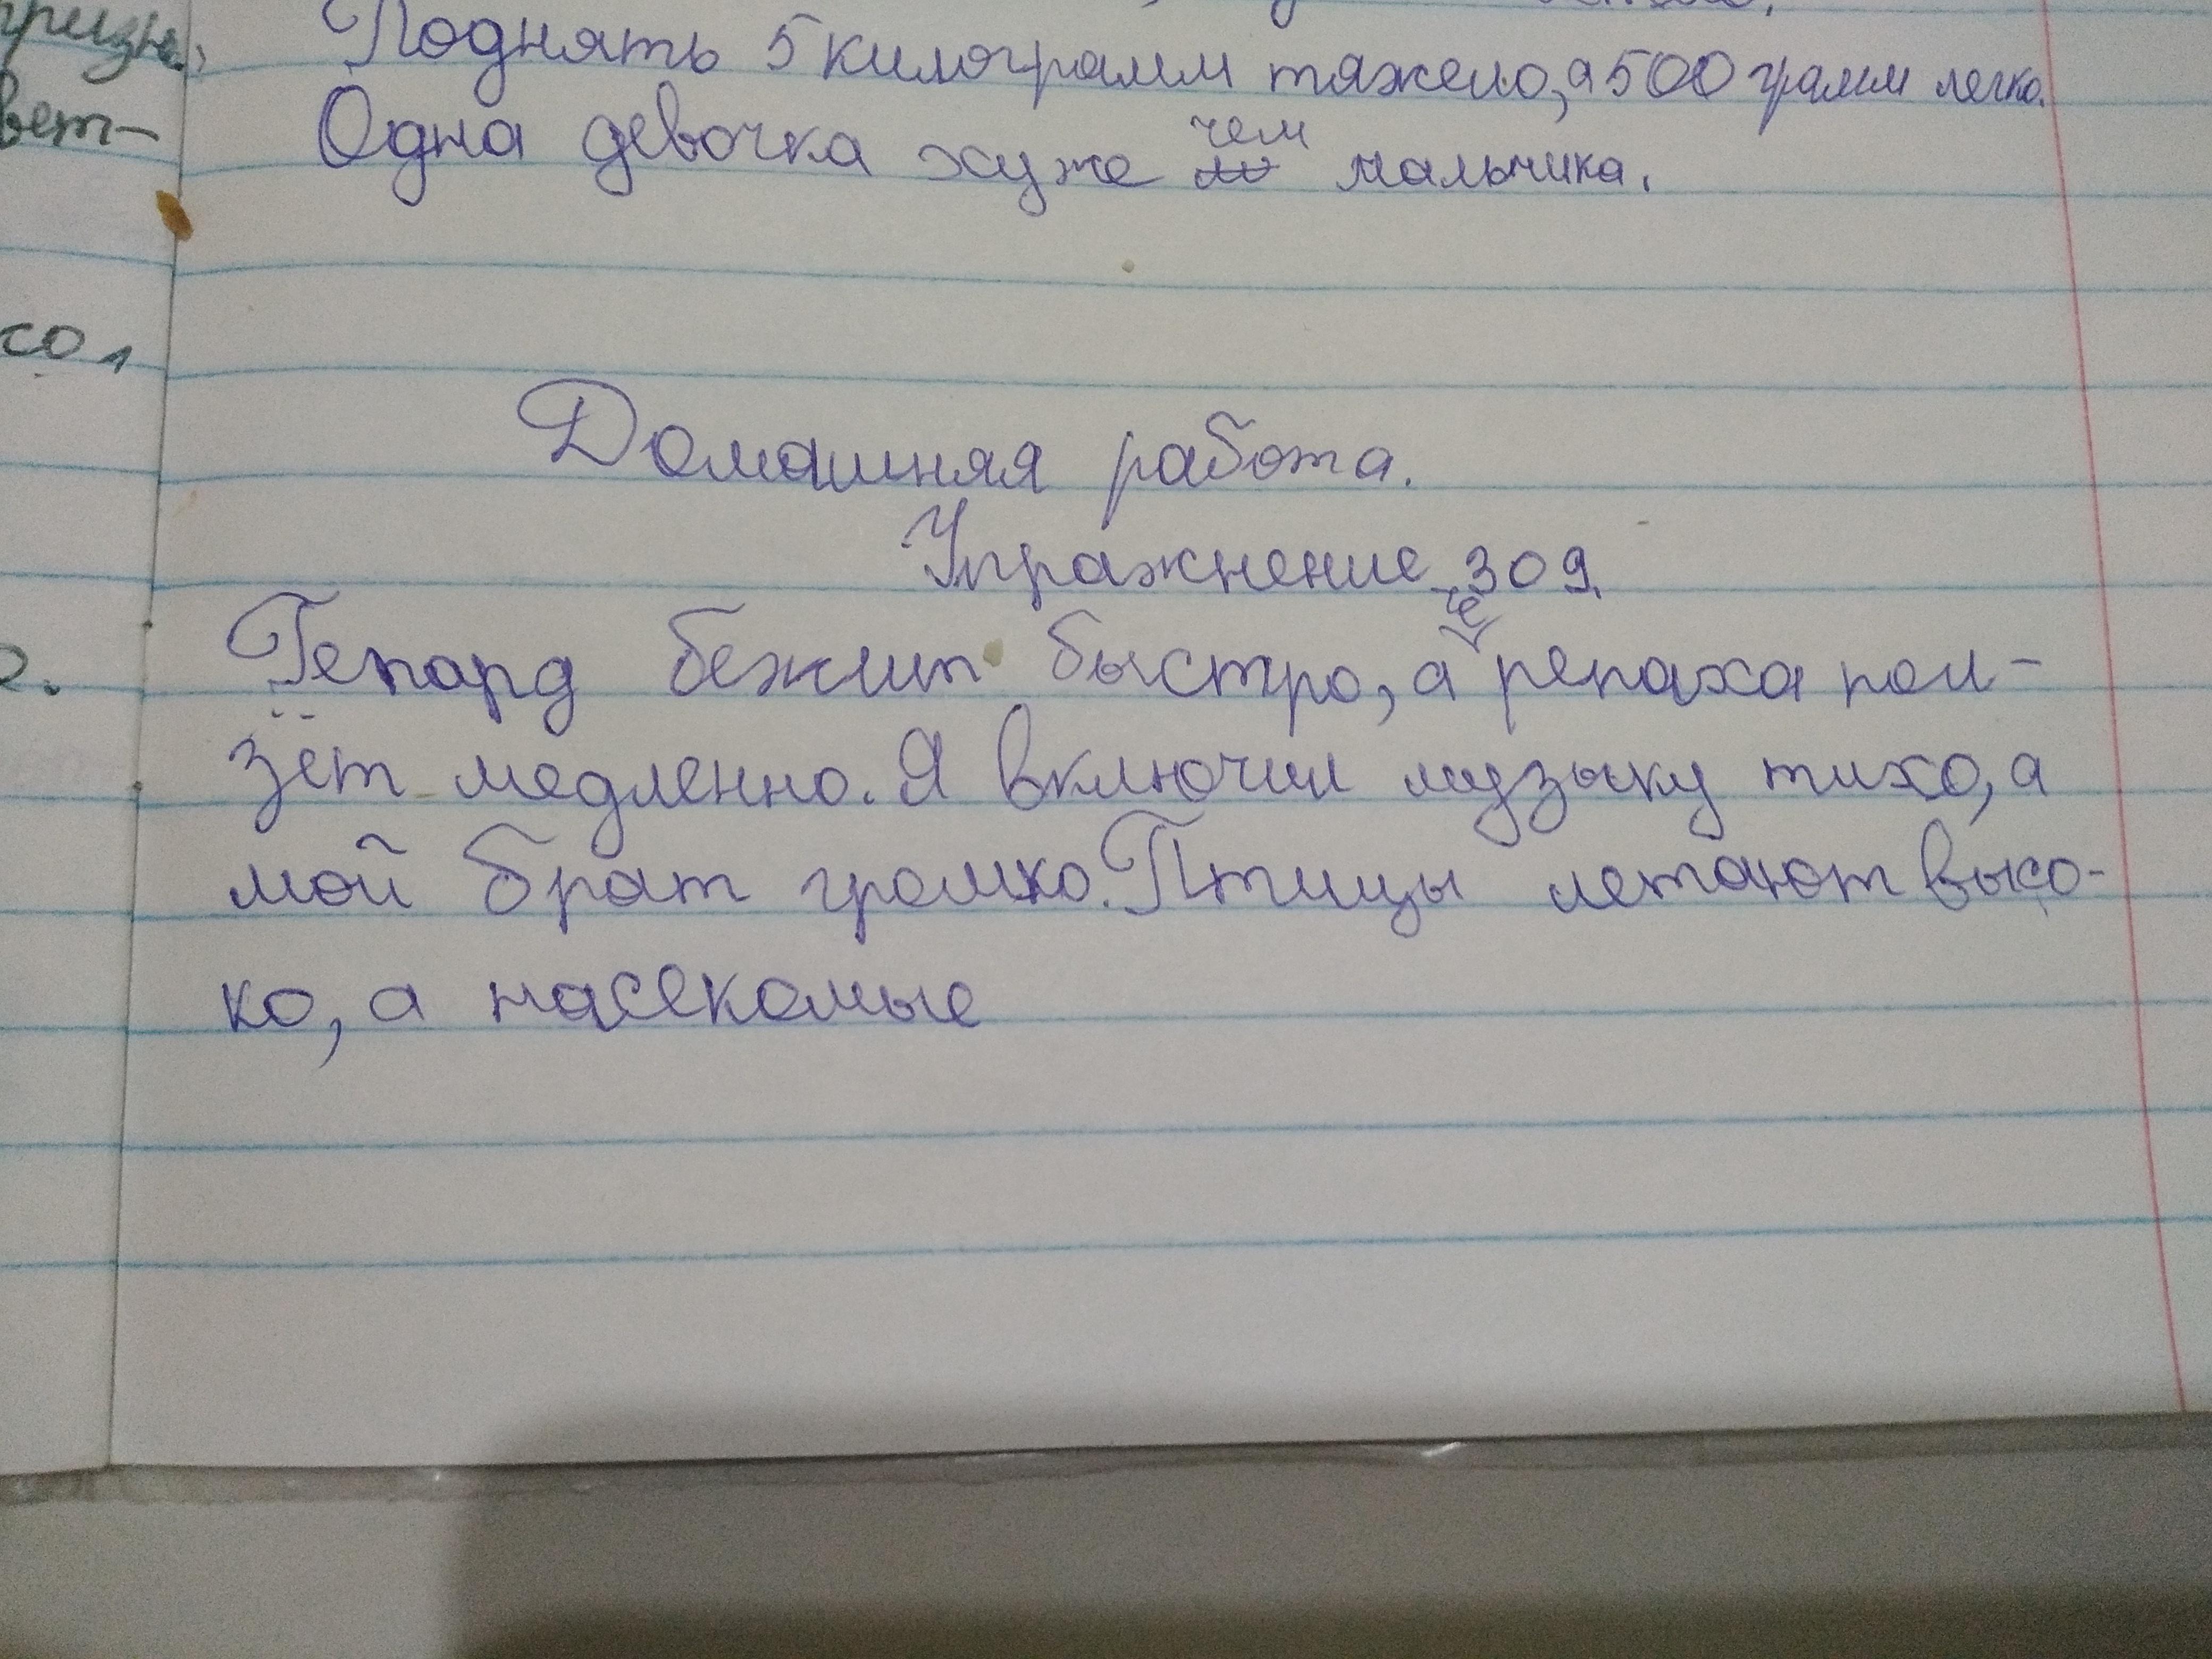 Поднять 5 килограмм тяжело, а 500 грамм легко.
Одна девочка хуже чем мальчика.
Домашняя работа.
Упражнение 309.
Гепард бежит быстро, а черепаха пол-
зёт медленно. Я включил музыку тихо, а
мой брат громко. Птицы летают высо-
ко, а насекомые